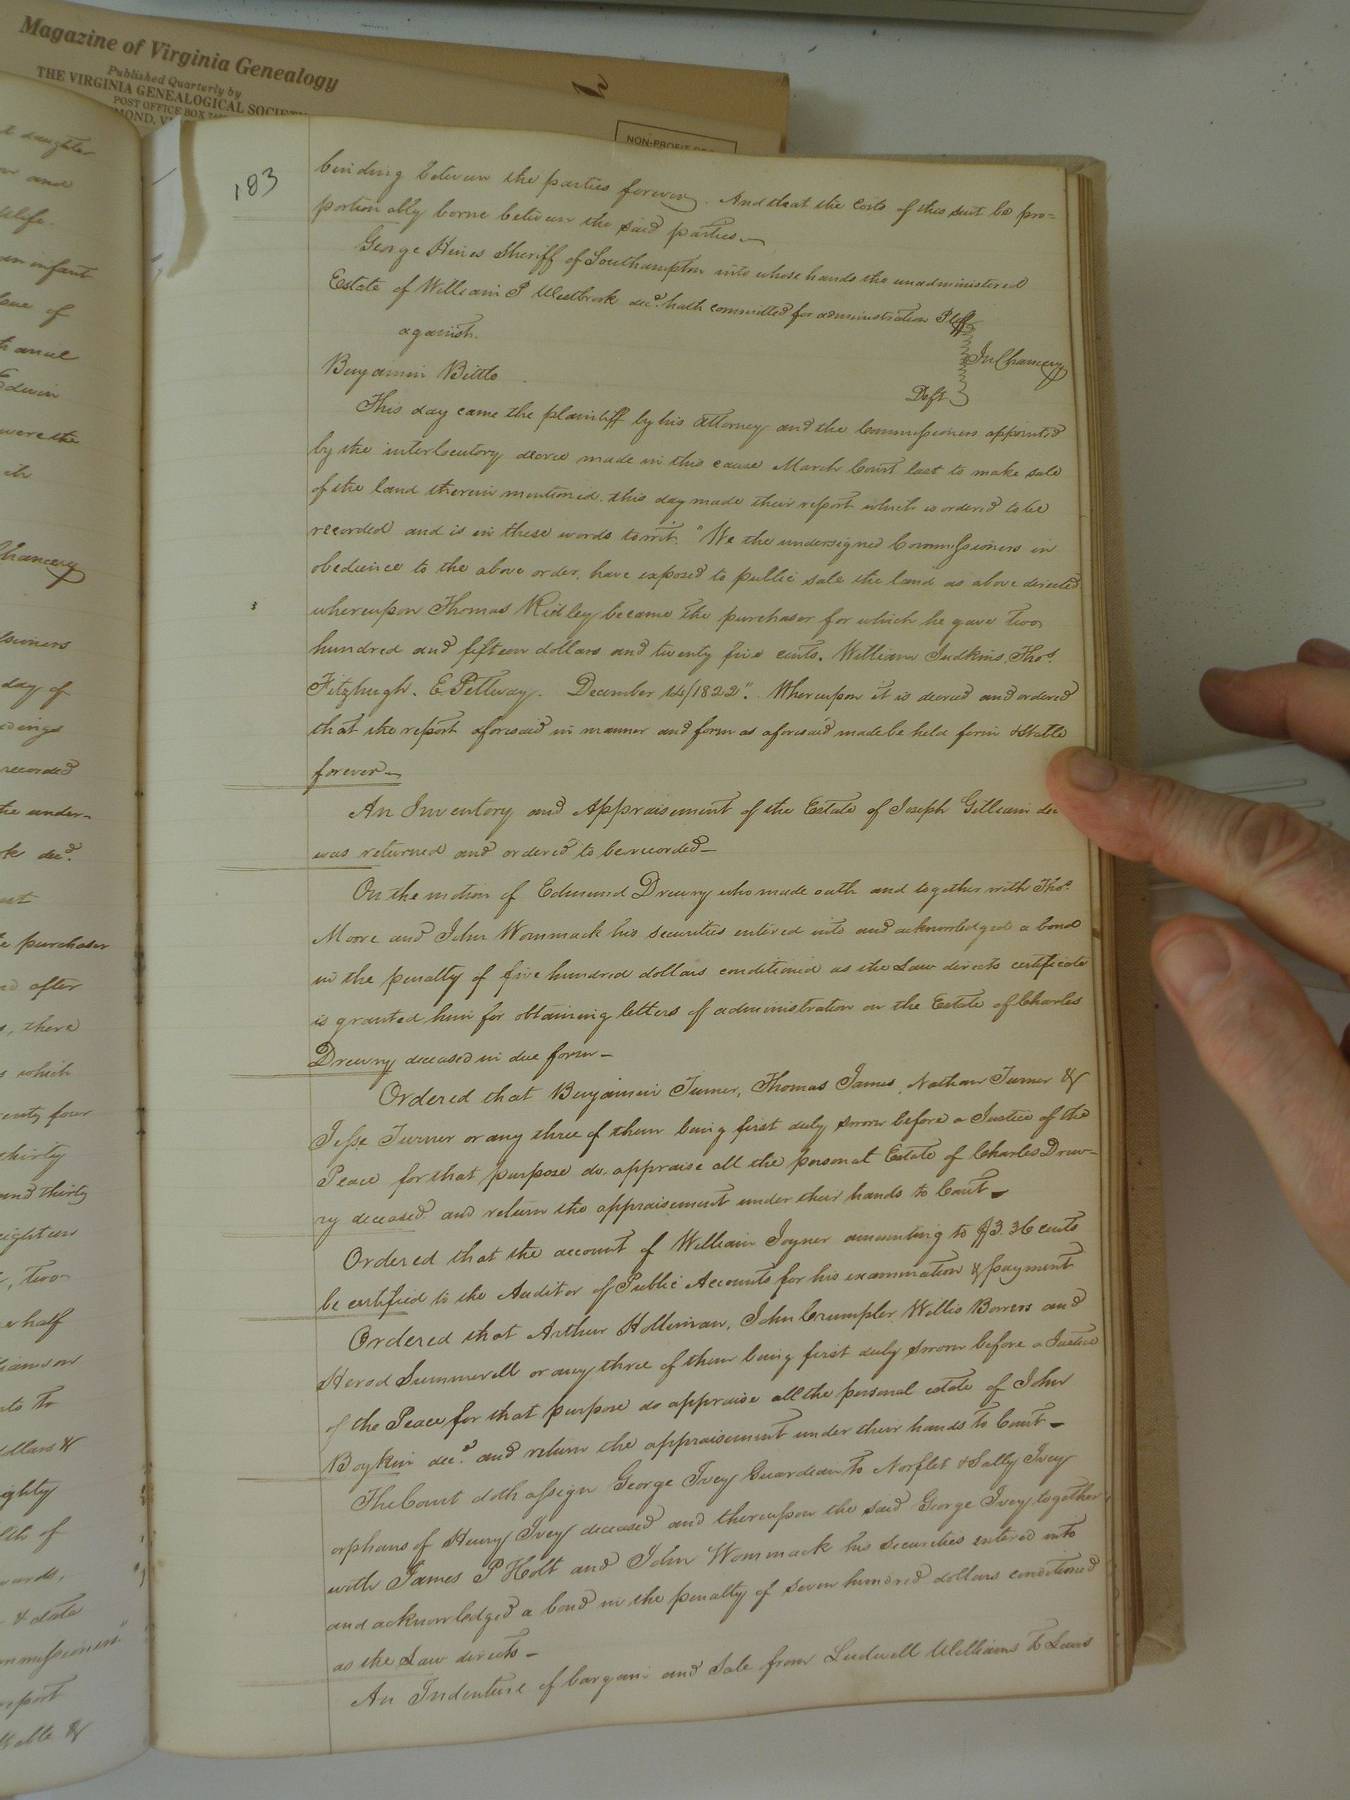 Magazine of Virginia Genealogy
Published Quarterly by
THE VIRGINIA GENEALOGICAL SOCIETY
POST OFFICE BOX
NON-PROFIT
183
binding between the parties forever. And that the Costs of this suit be pro=
portionably borne between the said parties
George Hines Sheriff of Southampton into whose hands the unadministered
Estate of William P Westbrook decd. hath committed for administration Plff
against
In Chancery
Benjamin Bittle
Deft
This day came the plaintiff by his attorney and the Commissioners appointed
by the interlocutory decree made in this cause March Court last to make sale
of the land therein mentioned. this day made their report which is ordered to be
recorded and is in these words towit. "We the undersigned Commissioners in
obedience to the above order, have exposed to public sale the land as above directed
whereupon Thomas Ridley became the purchaser for which he gave two
hundred and fifteen dollars and twenty five cents. William Judkins, Thos.
Fitzhugh. E. Pettway. December 14/1822". Whereupon it is decreed and ordered
that the report aforesaid in manner and form as aforesaid made be held firm & stable
forever
An Inventory and Appraisement of the Estate of Joseph Gilliam
was returned and ordered to be recorded
On the motion of Edmund Drewry who made oath and together with Thos.
Moore and John Wommack his securities entered into and acknowledged a bond
in the penalty of five hundred dollars conditioned as the Law directs certificate
is granted him for obtaining letters of administration on the Estate of Charles
Drewry deceased in due form
Ordered that Benjamin Turner, Thomas James, Nathan Turner &
Jesse Turner or any three of them being first duly sworn before a Justice of the
Peace for that purpose do appraise all the personal Estate of Charles Drew-
ry deceased and return the appraisement under their hands to Court
Ordered that the account of William Joyner amounting to $3.36 cents
be certified to the Auditor of Public Accounts for his examination & payment
Ordered that Arthur Holleman, John Crumpler, Willis Bowers and
Herod Summerell or any three of them being first duly sworn before a Justice
of the Peace for that purpose do appraise all the personal estate of John
Boykin decd. and return the appraisement under their hands to Court
The Court doth assign George Ivey Guardian to Norflet & Sally Ivey
orphans of Henry Ivey deceased and thereupon the said George Ivey together
with James P Holt and John Wommack his securities entered into
and acknowledged a bond in the penalty of seven hundred dollars conditioned
as the Law directs
An Indenture of bargain and sale from Ludwell Williams to Lewis